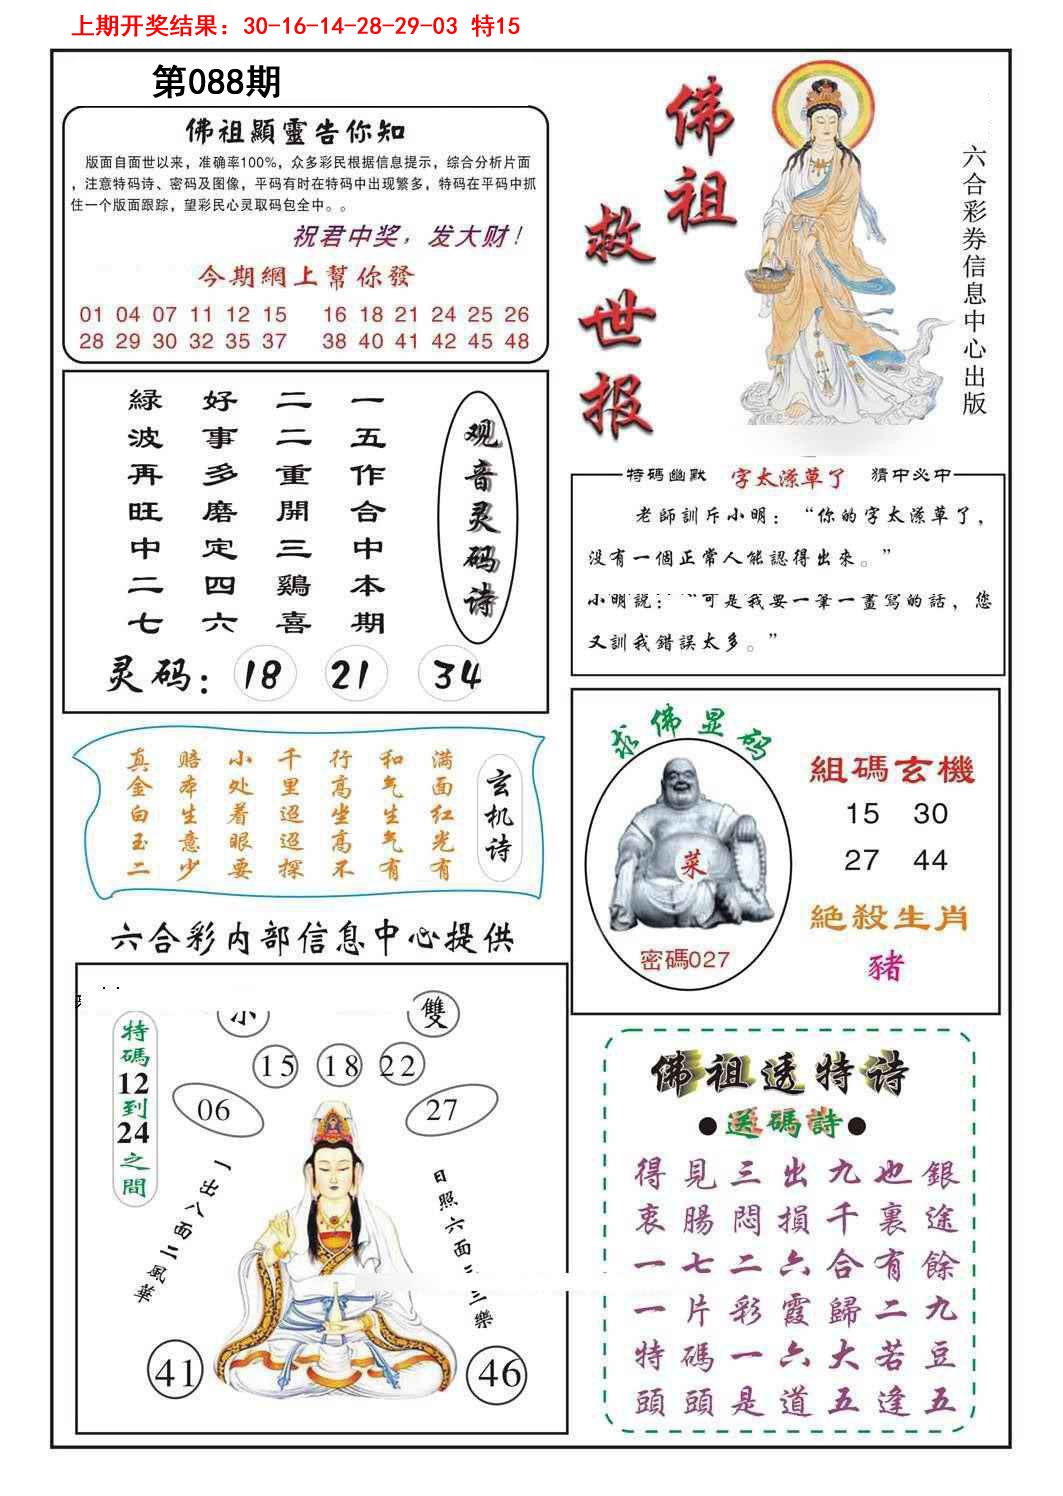 上期开奖结果：30-16-14-28-29-03 特15
第088期
佛祖顯靈告你知
版面自面世以来，准确率100%，众多彩民根据信息提示，综合分析片面
，注意特码诗、密码及图像，平码有时在特码中出现繁多，特码在平码中抓
住一个版面跟踪，望彩民心灵取码包全中。。
祝君中奖，发大财！
今期網上幫你發
01 04 07 11 12 15 16 18 21 24 25 26
28 29 30 32 35 37 38 40 41 42 45 48
佛祖救世报
六合彩券信息中心出版
观音灵码诗
一五作合中本期
二二重開三鷄喜
好事多磨定四六
緑波再旺中二七
灵码：18 21 34
特碼幽默 字太潦草了 猜中必中
老師訓斥小明：“你的字太潦草了，
没有一個正常人能認得出來。”
小明説：“可是我要一筆一畫寫的話，您
又訓我錯誤太多。”
玄机诗
满面红光有
和气生气有
行高坐高不
千里迢迢探
小处着眼要
赔本生意少
真金白玉二
求佛显码
菜
密碼027
組碼玄機
15 30
27 44
絶殺生肖
豬
六合彩内部信息中心提供
特碼12到24之間
小
雙
15 18 22
06 27
一出八面二風華
日照六面二三樂
41 46
佛祖透特诗
●送碼詩●
得見三出九也銀
衷腸悶損千裏途
一七二六合有餘
一片彩霞歸二九
特碼一六大若豆
頭頭是道五逢五